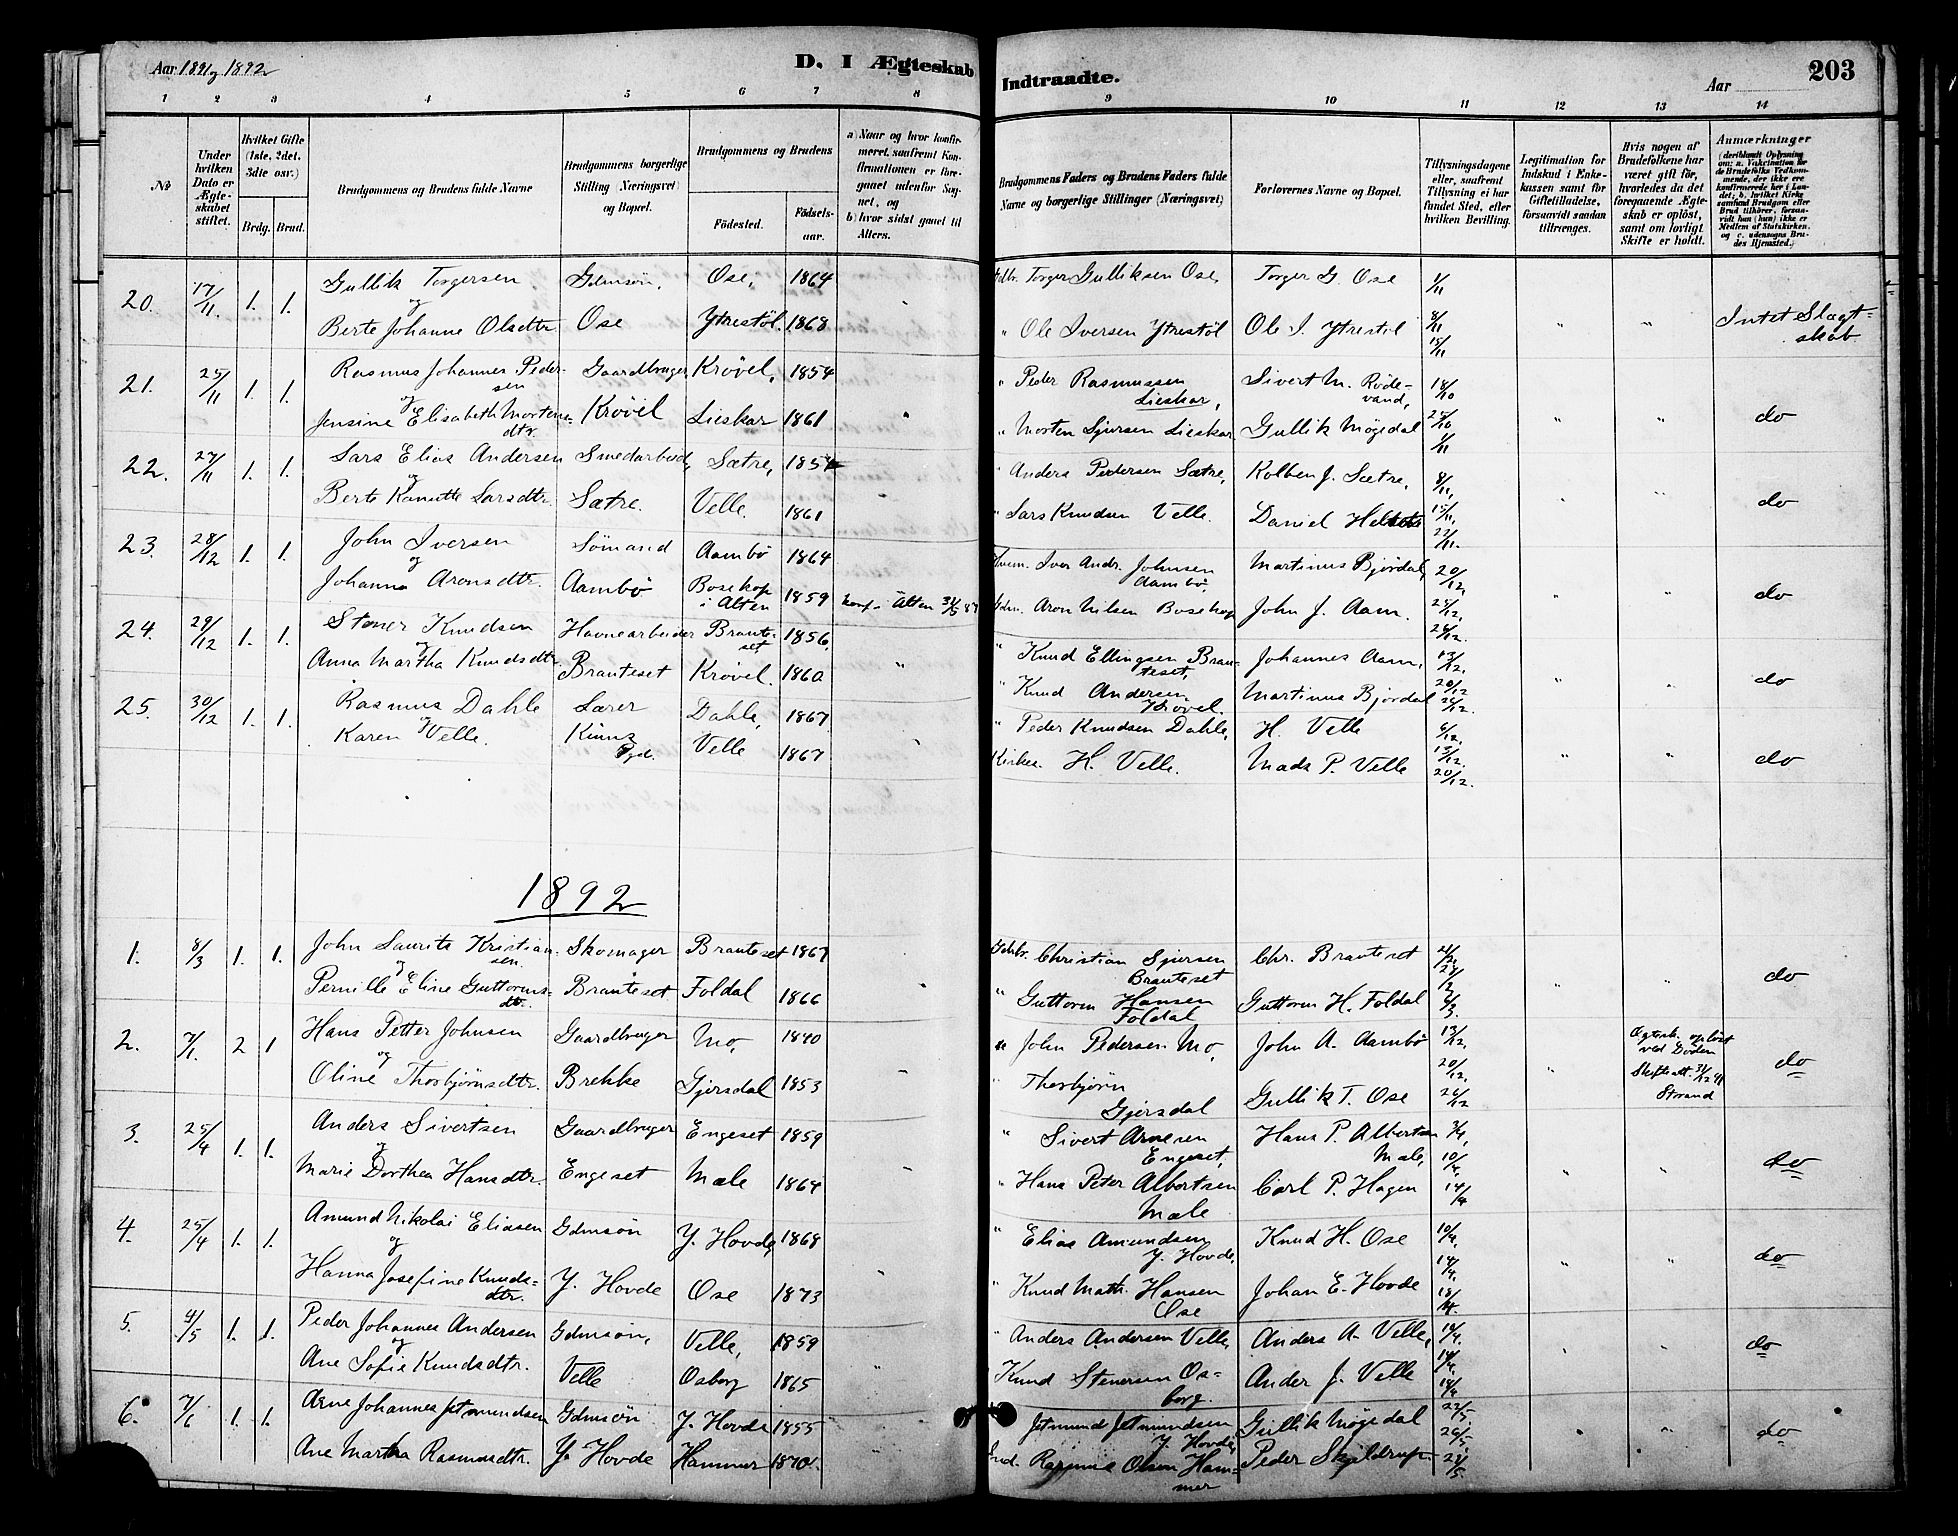 Aar 1891 og 1892
D. I Ægteskab Indtraadte.
Aar
203
1 2 3 4 5 6 7 8 9 10 11 12 13 14
No
Under hvilken Dato er Ægteskabet stiftet.
Hvilket Gifte (1ste, 2det, 3die osv.)
Brdg. Brud.
Brudgommens og Brudens fulde Navne
Brudgommens borgerlige Stilling (Næringsvei) og Bopæl.
Brudgommens og Brudens
Födested.
Födsels-aar.
a) Naar og hvor konfirmeret, saafremt Konfirmationen er foregaaet udenfor Sognet, og
b) hvor sidst gaaet til Alters.
Brudgommens Faders og Brudens Faders fulde Navne og borgerlige Stillinger (Næringsvei)
Forlovernes Navne og Bopæl.
Tillysningsdagene eller, saafremt Tillysning ei har fundet Sted, efter hvilken Bevilling.
Legitimation for Indskud i Enkekassen samt for Giftetilladelse, forsaavidt saadan tiltrænges.
Hvis nogen af Brudefolkene har været gift för, hvorledes da det foregaaende Ægteskab er oplöst, samt om lovligt Skifte er holdt.
Anmærkninger
(deriblandt Oplysning om: a. Vakcination for de Brudefolks Vedkommende, der ikke ere konfirmerede her i Landet, b. hvilket Kirkesamfund Brudgom eller Brud tilhörer, forsaavidt han (hun) ikke er Medlem af Statskirken, og c. udensogns Brudes Hjemsted.)
20. 17/11. 1. 1. Gullik Torgersen Gdmsøn, Ose, 1864 Torger Gulliksen Ose, Torger G. Ose 1/11
og
Berte Johanne Olsdtr. Ose Ytrestöl. 1868 " Ole Iversen Ytrestöl Ole I. Ytrestöl 8/11 15/11 " " Intet Slægt-
skab
21. 25/11 1. 1. Rasmus Johannes Peder-
sen Gaardbruger Krövel, 1854 " Peder Rasmussen
Lieskar, Sivert M. Røde-
vand, 18/10
og
Jensine Elisabeth Mortens-
dtr. Krövel Lieskar 1861 " " Morten Sjursen Lieskar Gullik Mögedal 25/10 1/11 " " do
22. 27/11 1. 1. Lars Elias Andersen Smedarbeid, Sætre, 1854 " Anders Pedersen Sætre, Kolben J. Sætre, 8/11,
og
Berte Kanutte Larsdtr. Sætre. Velle 1861 " Lars Knudsen Velle. Daniel 15/11, 22/11. " " do
23. 28/12 1. 1. John Iversen Sömand Aambö 1864 Iver Andr. Johnsen
Aambö, Martinus Björdal, 20/12,
og
Johanna Aronsdtr. Aambö Bosekop
i Alten 1859 konf. i Alten Aron Nilsen Bosekop John J. Aam. 26/12. " " do
24. 29/12 1. 1. Stener Knudsen Havnearbeider Braute-
set 1856, " Knud Ellingsen Brau-
teset, Johannes Aam, 13/12.
og
Anna Martha Knudsdtr. Brauteset Krövel. 1860. " " Knud Andersen
Krövel. Martinus Björdal 20/12 26/12. " " do
25. 30/12 1. 1. Rasmus Dahle Lærer Dahle, 1867 " Peder Knudsen Dahle, H. Velle 6/12,
og
Karen Velle. Velle 1867 " Kirkes. H. Velle. Mads P. Velle 13/12. 20/12. " " do
1892
1. 8/3 1. 1. John Laurits Kristian-
sen. Skomager Brauteset 1867 Gdbr. Christian Sjursen
Brauteset Chr. Brauteset 21/2,
og
Pernille Eline Guttorms-
dtr. Brauteset Foldal 1866 " Guttorm Hansen
Foldal Guttorm H. Foldal 6/3. " " do
2. 7/1. 2 1 Hans Petter Johnsen Gaardbruger Mo, 1840 " John Pedersen Mo, John A. Aambö 13/12, Ægtesk. oplöst
ved Döden
og
Oline Thorbjörnsdtr. Brekke Gjersdal 1853 " Thorbjörn
Gjersdal Gullik T. Ose 20/12, 26/12 " Skifteatt. 31/12 91
Strand do
3. 25/4 1. 1. Anders Sivertsen Gaardbruger Engeset 1859 " Sivert Arnesen
Engeset, Hans P. Albertsen
Mæle, 3/4,
og
Marie Dorthea Hansdtr. Engeset Mæle 1864 " " Hans Peter Albertsen
Mæle Carl P. Hagen 10/4, 14/4 " " do
4. 25/4 1. 1. Amund Nikolai Eliasen Gdmsøn Y. Hovde, 1868 " Elias Amundsen
Y. Hovde, Knud H. Ose 10/4.
og
Hanna Josefine Knuds-
dtr. Y. Hovde Ose 1873 " Knud Math. Hansen
Ose Johan E. Hovde 14/4. 18/4. " " do
5. 4/5 1. 1. Peder Johannes Andersen Gdmsøn, Velle, 1859 " Anders Andersen Velle, Anders A. Velle, 10/4.
og
Ane Sofie Knudsdtr. Velle Osborg 1865 " Knud Stenersen Os-
borg. Ander J. Velle 14/4, 18/4 " " do
6. 7/6 1. 1. Arne Johannes Jetmundsen Gdmsøn Y. Hovde 1855 " Jetmund Jetmundsen
Y. Hovde, Gullik Mögedal 22/5.
Ane Martha Rasmusdtr. Y. Hovde Hammer 1870. Ind. Rasmus Olsen Ham-
mer Peder Skjeldrup. 26/5 29/5 " " do